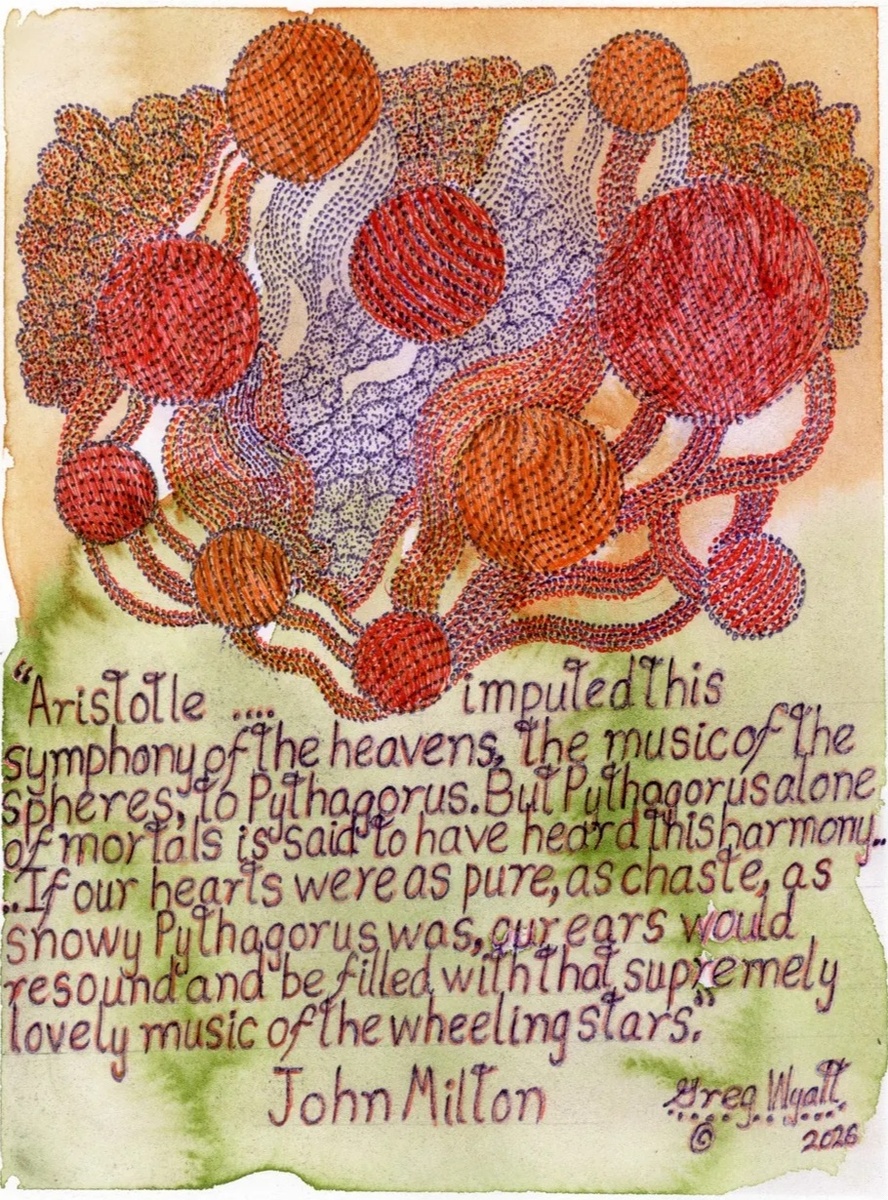 “Aristotle .... imputed this
symphony of the heavens, the music of the
spheres, to Pythagorus. But Pythagorus alone
of mortals is said to have heard this harmony..
..If our hearts were as pure, as chaste, as
snowy Pythagorus was, our ears would
resound and be filled with that supremely
lovely music of the wheeling stars.”
John Milton
Greg Wyatt
© 2026